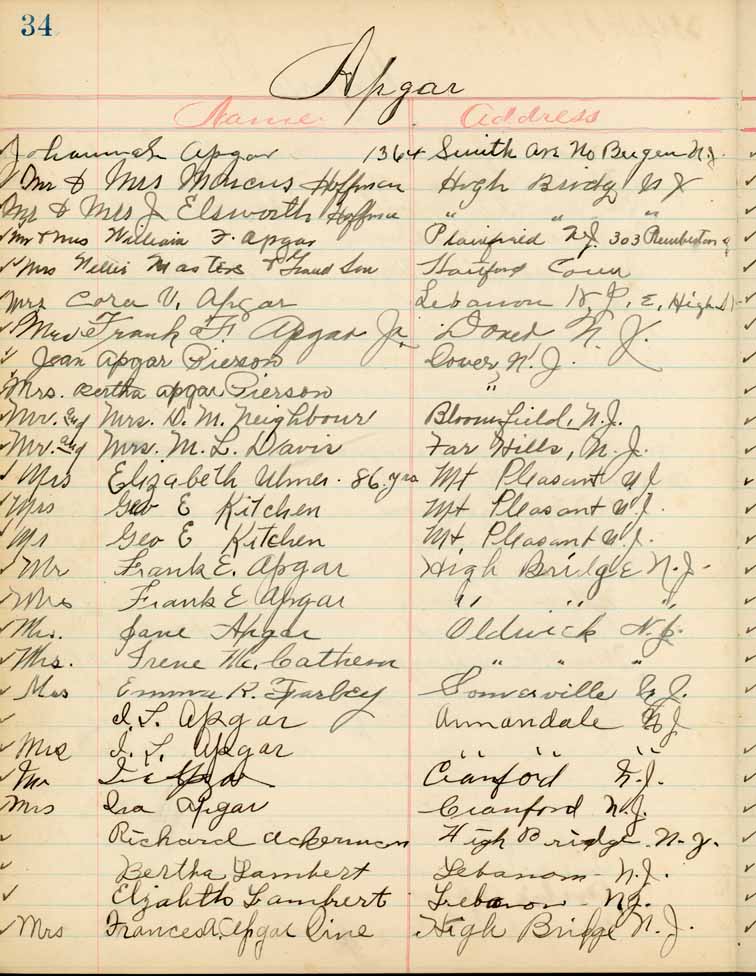 34
Apgar
Name Address
Johannah Apgar 1364 Smith Ave No Bergen N.J.
Mr & Mrs Marcus Hoffman High Bridge N J
Mr & Mrs J. Elsworth Hoffman " " "
Mr & Mrs William F. Apgar Plainfield N.J. 303 Pemberton
Mrs Nellie Masters & Grand Son Hartford Conn
Mrs Cora V. Apgar Lebanon N.J. E. High
Mrs Frank F. Apgar Jr. Dover N.J.
Jean Apgar Pierson Dover, N.J.
Mrs. Bertha Apgar Pierson "
Mr. and Mrs. D. M. Neighbour Bloomfield, N.J.
Mr. and Mrs. M. L. Davis Far Hills, N.J.
Mrs Elizabeth Ulmer. 86. yrs Mt Pleasant N J
Mrs Geo E Kitchen Mt Pleasant N.J.
Mr Geo E Kitchen Mt Pleasant N.J.
Mr Frank E. Apgar High Bridge N.J.
Mrs Frank E Apgar " " "
Mrs. Jane Apgar Oldwick N.J.
Mrs. Irene Mc. Cathern " " "
Mrs Emma R. Farley Somerville N.J.
I. S. Apgar Annandale N J
Mrs I. S. Apgar " " "
Mr Ira Apgar Cranford N.J.
Mrs Ira Apgar Cranford N.J.
Richard Ackerman High Bridge. N.J.
Bertha Lambert Lebanon - N.J.
Elizabeth Lambert Lebanon - N.J.
Mrs Frances A. Apgar Cline High Bridge N.J.